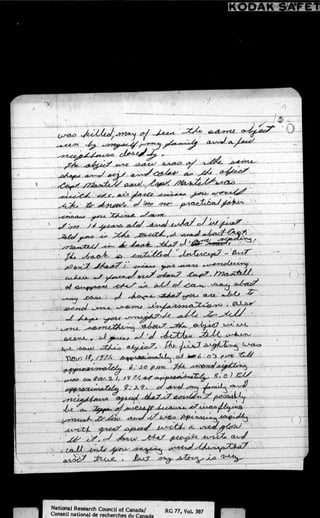 KODAK SAFET
was killed, may of been the same object
seen by myself, my family and a few
neighbours close by.
The object we saw was of the same
shape and size and color as the object
Capt. Mantell saw, Capt. Mantell was
with the air force incase you would
like to know. I'm no practical joker
incase you think I am.
I'm 14 years old and what I've just
told you is the truth, I read about Capt.
Mantell in the book that I reading,
The book is entitled "Intercept - But
Don't Shoot" incase you were wondering
where I found out about Capt. Mantell.
I suppose that is all I can say about
my case. I hope that you are able to
send me some information. Also
I hope you might be able to tell
me something about the object we've
seen. I guess I'd better tell when
we saw this object. The first sighting was
Nov. 18, 1976 approximately at 6:03 p.m. till
approximately 6:20 p.m. The second sighting
was on Nov. 21, 1976 at approximately 8:01 till
approximately 8:29. I and my family and
neighbours agreed that it couldn't possibly
be a type of aircraft because it was flying
much to low and it was spinning rapidly
with great speed with a red glow
to it. I know that people write and
call into you saying weird things that
aren't true. But my story is very
National Research Council of Canada/
Conseil national de recherches du Canada
RG 77, Vol. 307